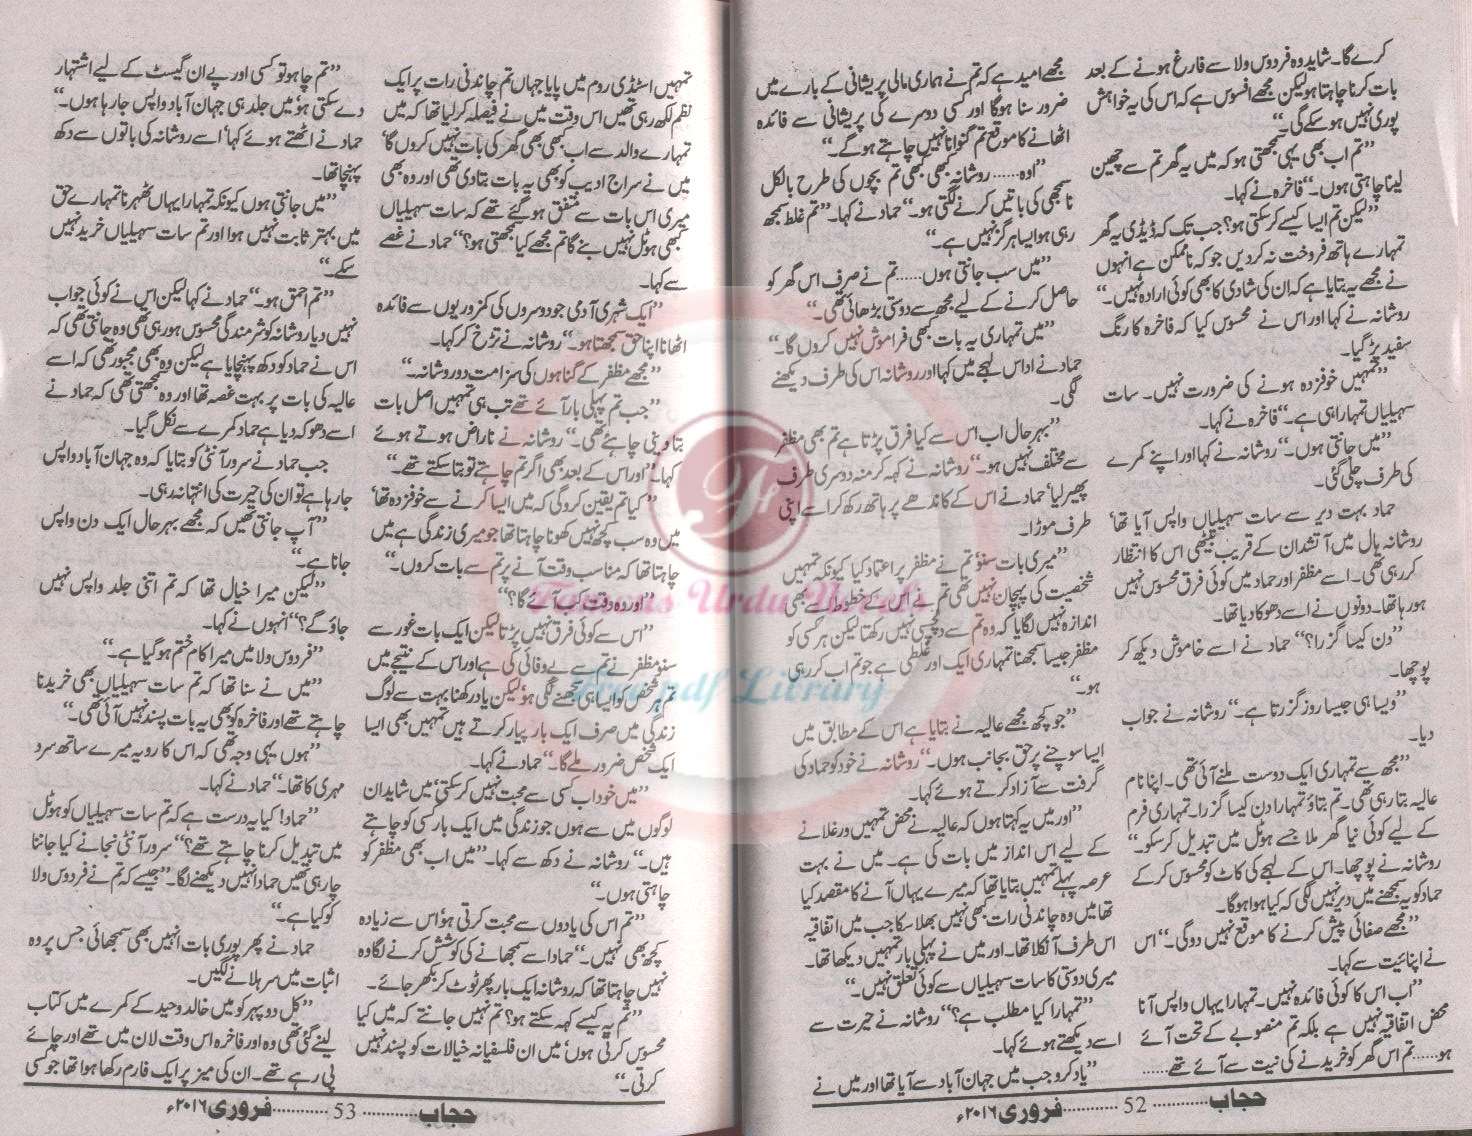 کرے گا۔ شاید وہ فردوس ولا سے فارغ ہونے کے بعد
بات کرنا چاہتا ہو لیکن مجھے افسوس ہے کہ اس کی یہ خواہش
پوری نہیں ہو سکے گی۔“
”تم اب بھی یہی سمجھتی ہو کہ میں یہ گھر تم سے چھین
لینا چاہتی ہوں۔“ فاخرہ نے کہا۔
”لیکن تم ایسا کیسے کر سکتی ہو؟ جب تک کہ ڈیڈی یہ گھر
تمہارے ہاتھ فروخت نہ کر دیں جو کہ ناممکن ہے انہوں
نے مجھے یہ بتایا ہے کہ ان کی شادی کا بھی کوئی ارادہ نہیں۔“
روشانہ نے کہا اور اس نے محسوس کیا کہ فاخرہ کا رنگ
سفید پڑ گیا۔
”تمہیں خوفزدہ ہونے کی ضرورت نہیں۔ سات
سہیلیاں تمہارا ہی ہے۔“ فاخرہ نے کہا۔
”میں جانتی ہوں۔“ روشانہ نے کہا اور اپنے کمرے
کی طرف چلی گئی۔
حماد بہت دیر سے سات سہیلیاں واپس آیا تھا‘
روشانہ ہال میں آتشدان کے قریب بیٹھی اس کا انتظار
کر رہی تھی۔ اسے مظفر اور حماد میں کوئی فرق محسوس نہیں
ہو رہا تھا۔ دونوں نے اسے دھوکا دیا تھا۔
”دن کیسا گزرا؟“ حماد نے اسے خاموش دیکھ کر
پوچھا۔
”ویسا ہی جیسا روز گزرتا ہے۔“ روشانہ نے جواب
دیا۔
”مجھ سے تمہاری ایک دوست ملنے آئی تھی۔ اپنا نام
عالیہ بتا رہی تھی۔ تم بتاؤ تمہارا دن کیسا گزرا۔ تمہاری فرم
کے لیے کوئی نیا گھر ملا جسے ہوٹل میں تبدیل کر سکو۔“
روشانہ نے پوچھا۔ اس کے لہجے کی کاٹ کو محسوس کر کے
حماد کو یہ سمجھنے میں دیر نہیں لگی کہ کیا ہوا ہوگا۔
”مجھے صفائی پیش کرنے کا موقع نہیں دو گی۔“ اس
نے اپنائیت سے کہا۔
”اب اس کا کوئی فائدہ نہیں۔ تمہارا یہاں واپس آنا
محض اتفاقیہ نہیں ہے بلکہ تم منصوبے کے تحت آئے
ہو...... تم اس گھر کو خریدنے کی نیت سے آئے تھے......
مجھے امید ہے کہ تم نے ہماری مالی پریشانی کے بارے میں
ضرور سنا ہوگا اور کسی دوسرے کی پریشانی سے فائدہ
اٹھانے کا موقع تم گنوانا نہیں چاہتے ہو گے۔“
”اوہ...... روشانہ کبھی کبھی تم بچوں کی طرح بالکل
ناسمجھی کی باتیں کرنے لگتی ہو۔“ حماد نے کہا۔ ”تم غلط سمجھ
رہی ہو ایسا ہرگز نہیں ہے۔“
”میں سب جانتی ہوں...... تم نے صرف اس گھر کو
حاصل کرنے کے لیے مجھ سے دوستی بڑھائی تھی۔“
”میں تمہاری یہ بات کبھی فراموش نہیں کروں گا۔“
حماد نے اداس لہجے میں کہا اور روشانہ اس کی طرف دیکھنے
لگی۔
”بہرحال اب اس سے کیا فرق پڑتا ہے تم بھی مظفر
سے مختلف نہیں ہو۔“ روشانہ نے کہہ کر منہ دوسری طرف
پھیر لیا‘ حماد نے اس کے کاندھے پر ہاتھ رکھ کر اسے اپنی
طرف موڑا۔
”میری بات سنو‘ تم نے مظفر پر اعتماد کیا کیونکہ تمہیں
شخصیت کی پہچان نہیں تھی تم نے اس کے خطوط سے بھی
اندازہ نہیں لگایا کہ وہ تم سے دلچسپی نہیں رکھتا لیکن ہر کسی کو
مظفر جیسا سمجھنا تمہاری ایک اور غلطی ہے جو تم اب کر رہی
ہو۔“
”جو کچھ مجھے عالیہ نے بتایا ہے اس کے مطابق میں
ایسا سوچنے پر حق بجانب ہوں۔“ روشانہ نے خود کو حماد کی
گرفت سے آزاد کرتے ہوئے کہا۔
”اور میں یہ کہتا ہوں کہ عالیہ نے محض تمہیں ورغلانے
کے لیے اس انداز میں بات کی ہے۔ میں نے بہت
عرصہ پہلے تمہیں بتایا تھا کہ میرے یہاں آنے کا مقصد کیا
تھا میں وہ چاندنی رات کبھی نہیں بھلا سکا جب میں اتفاقیہ
اس طرف آ نکلا تھا۔ اور میں نے پہلی بار تمہیں دیکھا تھا۔
میری دوستی کا سات سہیلیاں سے کوئی تعلق نہیں۔“
”تمہارا کیا مطلب ہے؟“ روشانہ نے حیرت سے
اسے دیکھتے ہوئے کہا۔
”یاد کرو جب میں جہان آباد سے آیا تھا اور میں نے
حجاب ........... 52 ........... فروری ۲۰۱۶ء
تمہیں اسٹڈی روم میں پایا جہاں تم چاندنی رات پر ایک
نظم لکھ رہی تھیں اس وقت میں نے فیصلہ کر لیا تھا کہ میں
تمہارے والد سے اب کبھی بھی گھر کی بات نہیں کروں گا‘
میں نے سراج ادیب کو بھی یہ بات بتا دی تھی اور وہ بھی
میری اس بات سے متفق ہو گئے تھے کہ سات سہیلیاں
کبھی ہوٹل نہیں بنے گا تم مجھے کیا سمجھتی ہو؟“ حماد نے غصے
سے کہا۔
”ایک شہری آدمی جو دوسروں کی کمزوریوں سے فائدہ
اٹھانا اپنا حق سمجھتا ہو۔“ روشانہ نے تڑخ کر کہا۔
”مجھے مظفر کے گناہوں کی سزا مت دو روشانہ۔“
”جب تم پہلی بار آئے تھے تب ہی تمہیں اصل بات
بتا دینی چاہئے تھی۔“ روشانہ نے ناراض ہوتے ہوئے
کہا۔ ”اور اس کے بعد بھی اگر تم چاہتے تو بتا سکتے تھے۔“
”کیا تم یقین کرو گی کہ میں ایسا کرنے سے خوفزدہ تھا‘
میں وہ سب کچھ نہیں کھونا چاہتا تھا جو میری زندگی ہے میں
چاہتا تھا کہ مناسب وقت آنے پر تم سے بات کروں۔“
”اور وہ وقت کب آئے گا؟“
”اس سے کوئی فرق نہیں پڑتا لیکن ایک بات غور سے
سنو مظفر نے تم سے بے وفائی کی ہے اور اس کے نتیجے میں
تم ہر شخص کو ایسا ہی سمجھنے لگی ہو‘ لیکن یاد رکھنا بہت سے لوگ
زندگی میں صرف ایک بار پیار کرتے ہیں تمہیں بھی ایسا
ایک شخص ضرور ملے گا۔“ حماد نے کہا۔
”میں خود اب کسی سے محبت نہیں کر سکتی‘ میں شاید ان
لوگوں میں سے ہوں جو زندگی میں ایک بار کسی کو چاہتے
ہیں۔“ روشانہ نے دکھ سے کہا۔ ”میں اب بھی مظفر کو
چاہتی ہوں۔“
”تم اس کی یادوں سے محبت کرتی ہو‘ اس سے زیادہ
کچھ بھی نہیں۔“ حماد اسے سمجھانے کی کوشش کرنے لگا وہ
نہیں چاہتا تھا کہ روشانہ ایک بار پھر ٹوٹ کر بکھر جائے۔
”تم یہ کیسے کہہ سکتے ہو؟ تم نہیں جانتے کہ میں کیا
محسوس کرتی ہوں‘ میں ان فلسفیانہ خیالات کو پسند نہیں
کرتی۔“
”تم چاہو تو کسی اور پے ان گیسٹ کے لیے اشتہار
دے سکتی ہو‘ میں جلد ہی جہان آباد واپس جا رہا ہوں۔“
حماد نے اٹھتے ہوئے کہا‘ اسے روشانہ کی باتوں سے دکھ
پہنچا تھا۔
”میں جانتی ہوں کیونکہ تمہارا یہاں ٹھہرنا تمہارے حق
میں بہتر ثابت نہیں ہوا اور تم سات سہیلیاں خرید نہیں
سکے۔“
”تم احمق ہو۔“ حماد نے کہا لیکن اس نے کوئی جواب
نہیں دیا روشانہ کو شرمندگی محسوس ہو رہی تھی وہ جانتی تھی کہ
اس نے حماد کو دکھ پہنچایا ہے لیکن وہ بھی مجبور تھی کہ اسے
عالیہ کی بات پر بہت غصہ تھا اور وہ سمجھتی تھی کہ حماد نے
اسے دھوکہ دیا ہے حماد کمرے سے نکل گیا۔
جب حماد نے سرور آنٹی کو بتایا کہ وہ جہان آباد واپس
جا رہا ہے تو ان کی حیرت کی انتہا نہ رہی۔
”آپ جانتی تھیں کہ مجھے بہرحال ایک دن واپس
جانا ہے۔“
”لیکن میرا خیال تھا کہ تم اتنی جلد واپس نہیں
جاؤ گے؟“ انہوں نے کہا۔
”فردوس ولا میں میرا کام ختم ہو گیا ہے۔“
”میں نے سنا تھا کہ تم سات سہیلیاں بھی خریدنا
چاہتے تھے اور فاخرہ کو بھی یہ بات پسند نہیں آئی تھی۔“
”ہوں یہی وجہ تھی کہ اس کا رویہ میرے ساتھ سرد
مہری کا تھا۔“ حماد نے کہا۔
”حماد! کیا یہ درست ہے کہ تم سات سہیلیاں کو ہوٹل
میں تبدیل کرنا چاہتے تھے؟“ سرور آنٹی نجانے کیا جاننا
چاہ رہی تھیں حماد انہیں دیکھنے لگا۔ ”جیسے کہ تم نے فردوس ولا
کو کیا ہے۔“
حماد نے پھر پوری بات انہیں بھی سمجھائی جس پر وہ
اثبات میں سر ہلانے لگیں۔
”کل دوپہر کو میں خالد وحید کے کمرے میں کتاب
لینے گئی تھی وہ اور فاخرہ اس وقت لان میں تھے اور چائے
پی رہے تھے۔ ان کی میز پر ایک فارم رکھا ہوا تھا جو کسی
حجاب ........... 53 ........... فروری ۲۰۱۶ء
Famous Urdu Novels
Free pdf Library